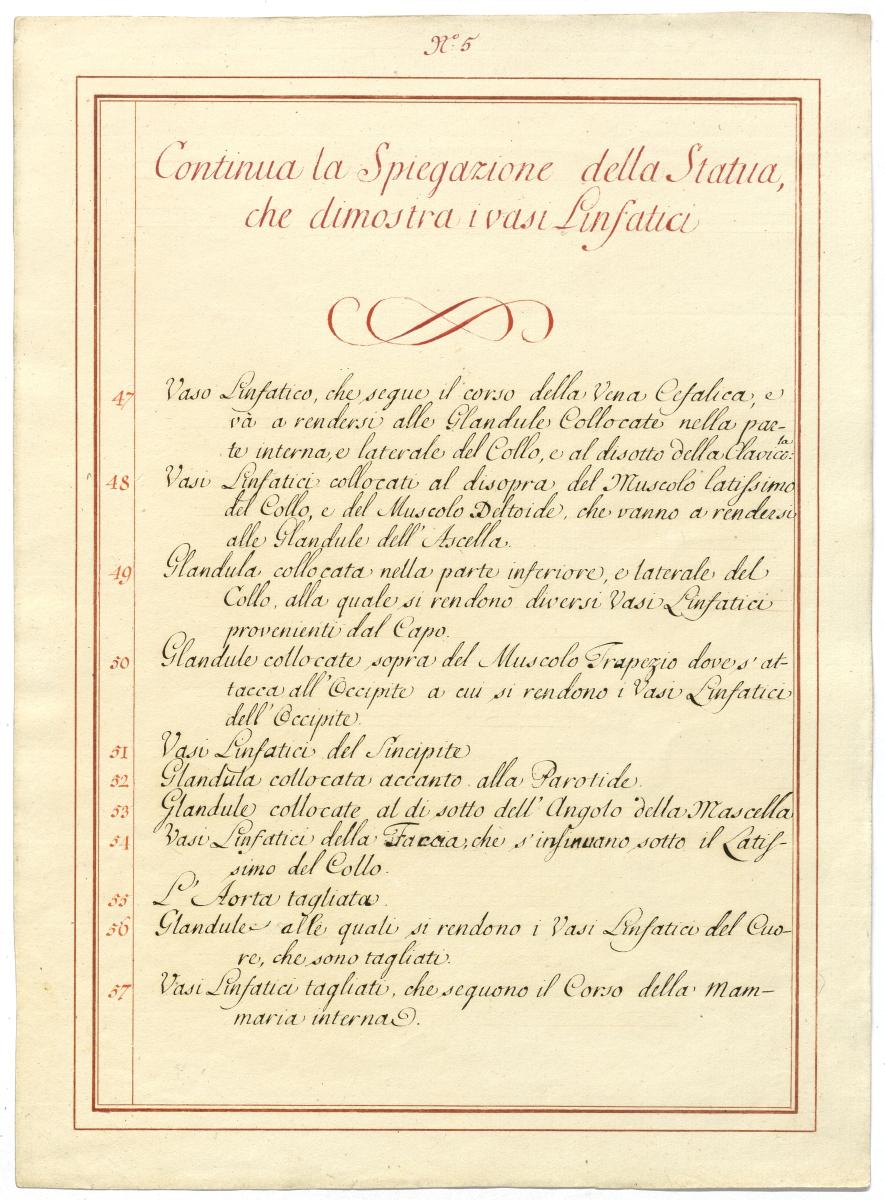 N.º 5
Continua la Spiegazione della Statua,
che dimostra i vasi Linfatici
47 Vaso Linfatico, che segue il corso della Vena Cefalica, e
và a rendersi alle Glandule Collocate nella par-
te interna, e laterale del Collo, e al disotto della Clavico:la
48 Vasi Linfatici collocati al disopra del Muscolo latissimo
del Collo, e del Muscolo Deltoide, che vanno a rendersi
alle Glandule dell' Ascella.
49 Glandula collocata nella parte inferiore, e laterale del
Collo, alla quale si rendono diversi Vasi Linfatici
provenienti dal Capo.
50 Glandule collocate sopra del Muscolo Trapezio dove s' at-
tacca all' Occipite a cui si rendono i Vasi Linfatici
dell' Occipite.
51 Vasi Linfatici del Sincipite
52 Glandula collocata accanto alla Parotide.
53 Glandule collocate al di sotto dell' Angolo della Mascella
54 Vasi Linfatici della Faccia, che s' insinuano sotto il Latis-
simo del Collo.
55 L' Aorta tagliata.
56 Glandule alle quali si rendono i Vasi Linfatici del Cuo-
re, che sono tagliati.
57 Vasi Linfatici tagliati, che seguono il Corso della Mam-
maria interna.